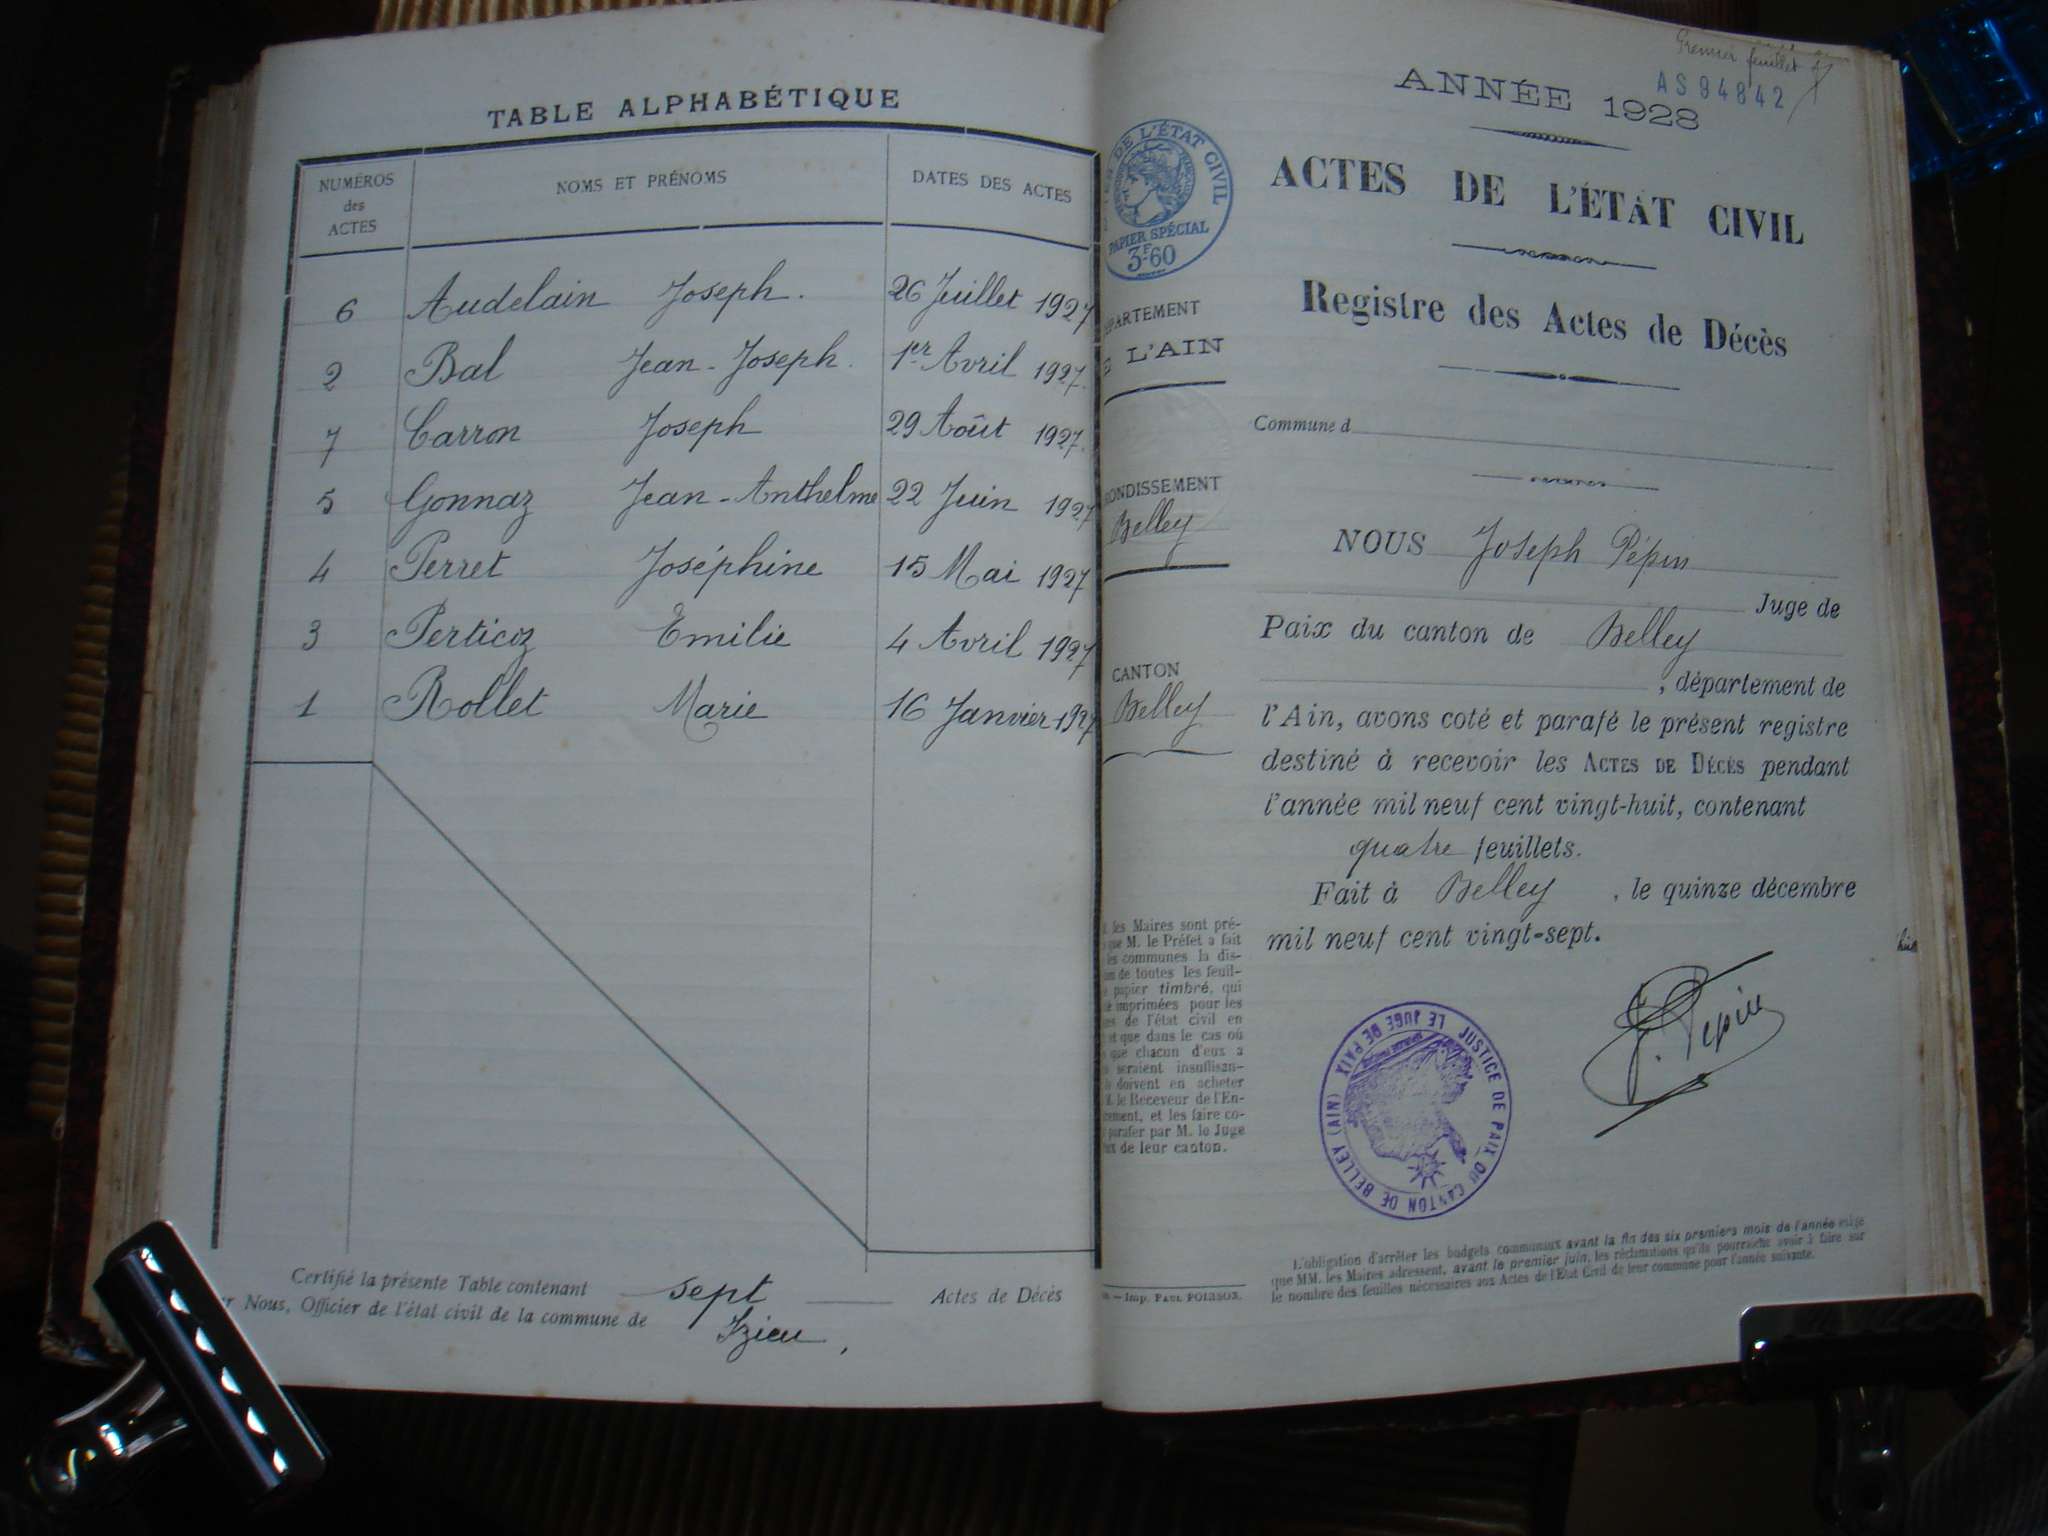 TABLE ALPHABÉTIQUE
NUMÉROS des ACTES NOMS ET PRÉNOMS DATES DES ACTES
6 Audelain Joseph. 26 Juillet 1927
2 Bal Jean-Joseph. 1er Avril 1927.
7 Carron Joseph 29 Août 1927.
5 Gonnaz Jean-Anthelme 22 Juin 1927
4 Perret Joséphine 15 Mai 1927
3 Perticoz Emilie 4 Avril 1927
1 Rollet Marie 16 Janvier 1927
Certifié la présente Table contenant sept Actes de Décès
r Nous, Officier de l'état civil de la commune de Izieu,
Premier feuillet
AS 94842
ANNÉE 1928
ACTES DE L'ÉTAT CIVIL
Registre des Actes de Décès
DE L'ÉTAT CIVIL
PAPIER SPÉCIAL
3F60
PARTEMENT
E L'AIN
ONDISSEMENT
Belley
CANTON
Belley
Commune d
NOUS Joseph Pépin
Juge de
Paix du canton de Belley
, département de
l'Ain, avons coté et parafé le présent registre
destiné à recevoir les ACTES DE DÉCÈS pendant
l'année mil neuf cent vingt-huit, contenant
quatre feuillets.
Fait à Belley, le quinze décembre
mil neuf cent vingt-sept.
J. Pépin
LE JUGE DE PAIX JUSTICE DE PAIX DU CANTON DE BELLEY (AIN)
les Maires sont pré-
que M. le Préfet a fait
les communes la dis-
de toutes les feuil-
papier timbré, qui
imprimées pour les
es de l'état civil en
et que dans le cas où
que chacun d'eux a
seraient insuffisan-
doivent en acheter
M. le Receveur de l'En-
rement, et les faire co-
parafer par M. le Juge
aix de leur canton.
— Imp. PAUL POIRSON.
L'obligation d'arrêter les budgets communaux avant la fin des six premiers mois de l'année exige
que MM. les Maires adressent, avant le premier juin, les réclamations qu'ils pourraient avoir à faire sur
le nombre des feuilles nécessaires aux Actes de l'État Civil de leur commune pour l'année suivante.